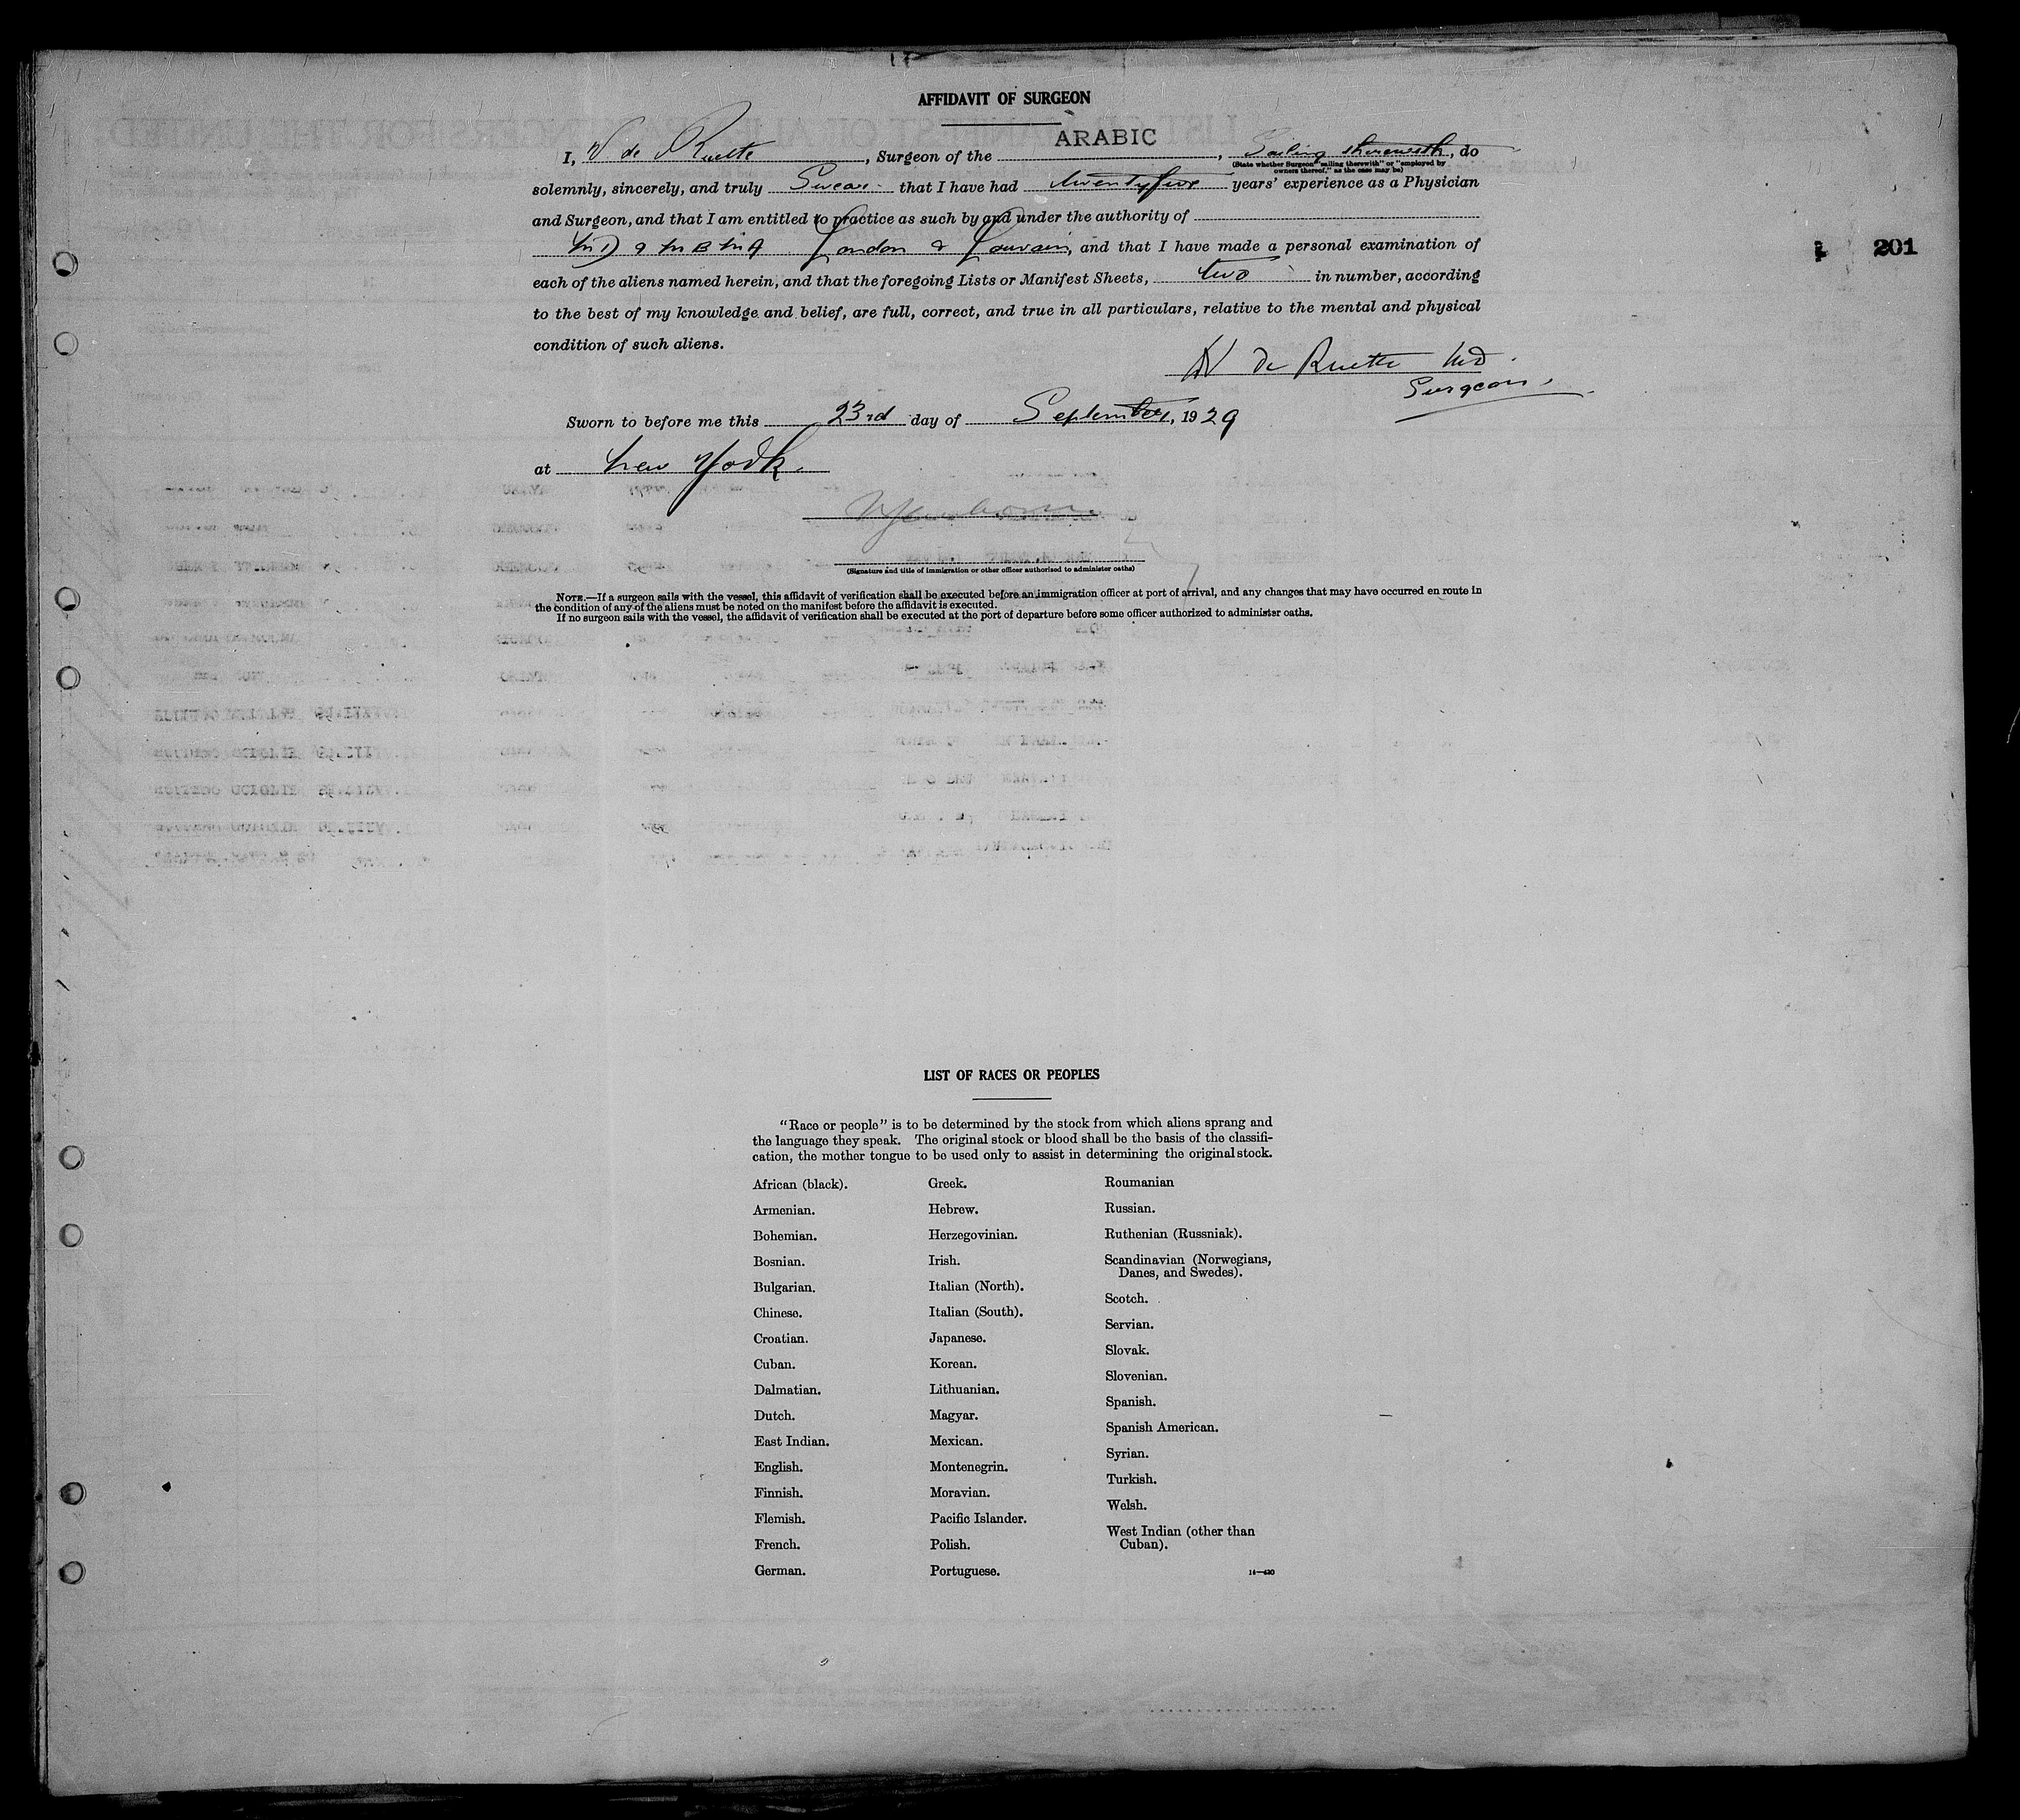 AFFIDAVIT OF SURGEON
I, de Ruette, Surgeon of the ARABIC, Sailing therewith, do
(State whether Surgeon "sailing therewith" or "employed by
owners thereof," as the case may be)
solemnly, sincerely, and truly Swear that I have had twenty five years' experience as a Physician
and Surgeon, and that I am entitled to practice as such by and under the authority of
MD & M B M A London & Louvain, and that I have made a personal examination of
201
each of the aliens named herein, and that the foregoing Lists or Manifest Sheets, two in number, according
to the best of my knowledge and belief, are full, correct, and true in all particulars, relative to the mental and physical
condition of such aliens.
de Ruette MD.
Surgeon.
Sworn to before me this 23rd day of September, 1929
at New York.
(Signature and title of immigration or other officer authorized to administer oaths)
NOTE.—If a surgeon sails with the vessel, this affidavit of verification shall be executed before an immigration officer at port of arrival, and any changes that may have occurred en route in
the condition of any of the aliens must be noted on the manifest before the affidavit is executed.
If no surgeon sails with the vessel, the affidavit of verification shall be executed at the port of departure before some officer authorized to administer oaths.
LIST OF RACES OR PEOPLES
"Race or people" is to be determined by the stock from which aliens sprang and
the language they speak. The original stock or blood shall be the basis of the classifi-
cation, the mother tongue to be used only to assist in determining the original stock.
African (black).
Armenian.
Bohemian.
Bosnian.
Bulgarian.
Chinese.
Croatian.
Cuban.
Dalmatian.
Dutch.
East Indian.
English.
Finnish.
Flemish.
French.
German.
Greek.
Hebrew.
Herzegovinian.
Irish.
Italian (North).
Italian (South).
Japanese.
Korean.
Lithuanian.
Magyar.
Mexican.
Montenegrin.
Moravian.
Pacific Islander.
Polish.
Portuguese.
Roumanian
Russian.
Ruthenian (Russniak).
Scandinavian (Norwegians,
Danes, and Swedes).
Scotch.
Servian.
Slovak.
Slovenian.
Spanish.
Spanish American.
Syrian.
Turkish.
Welsh.
West Indian (other than
Cuban).
14—420